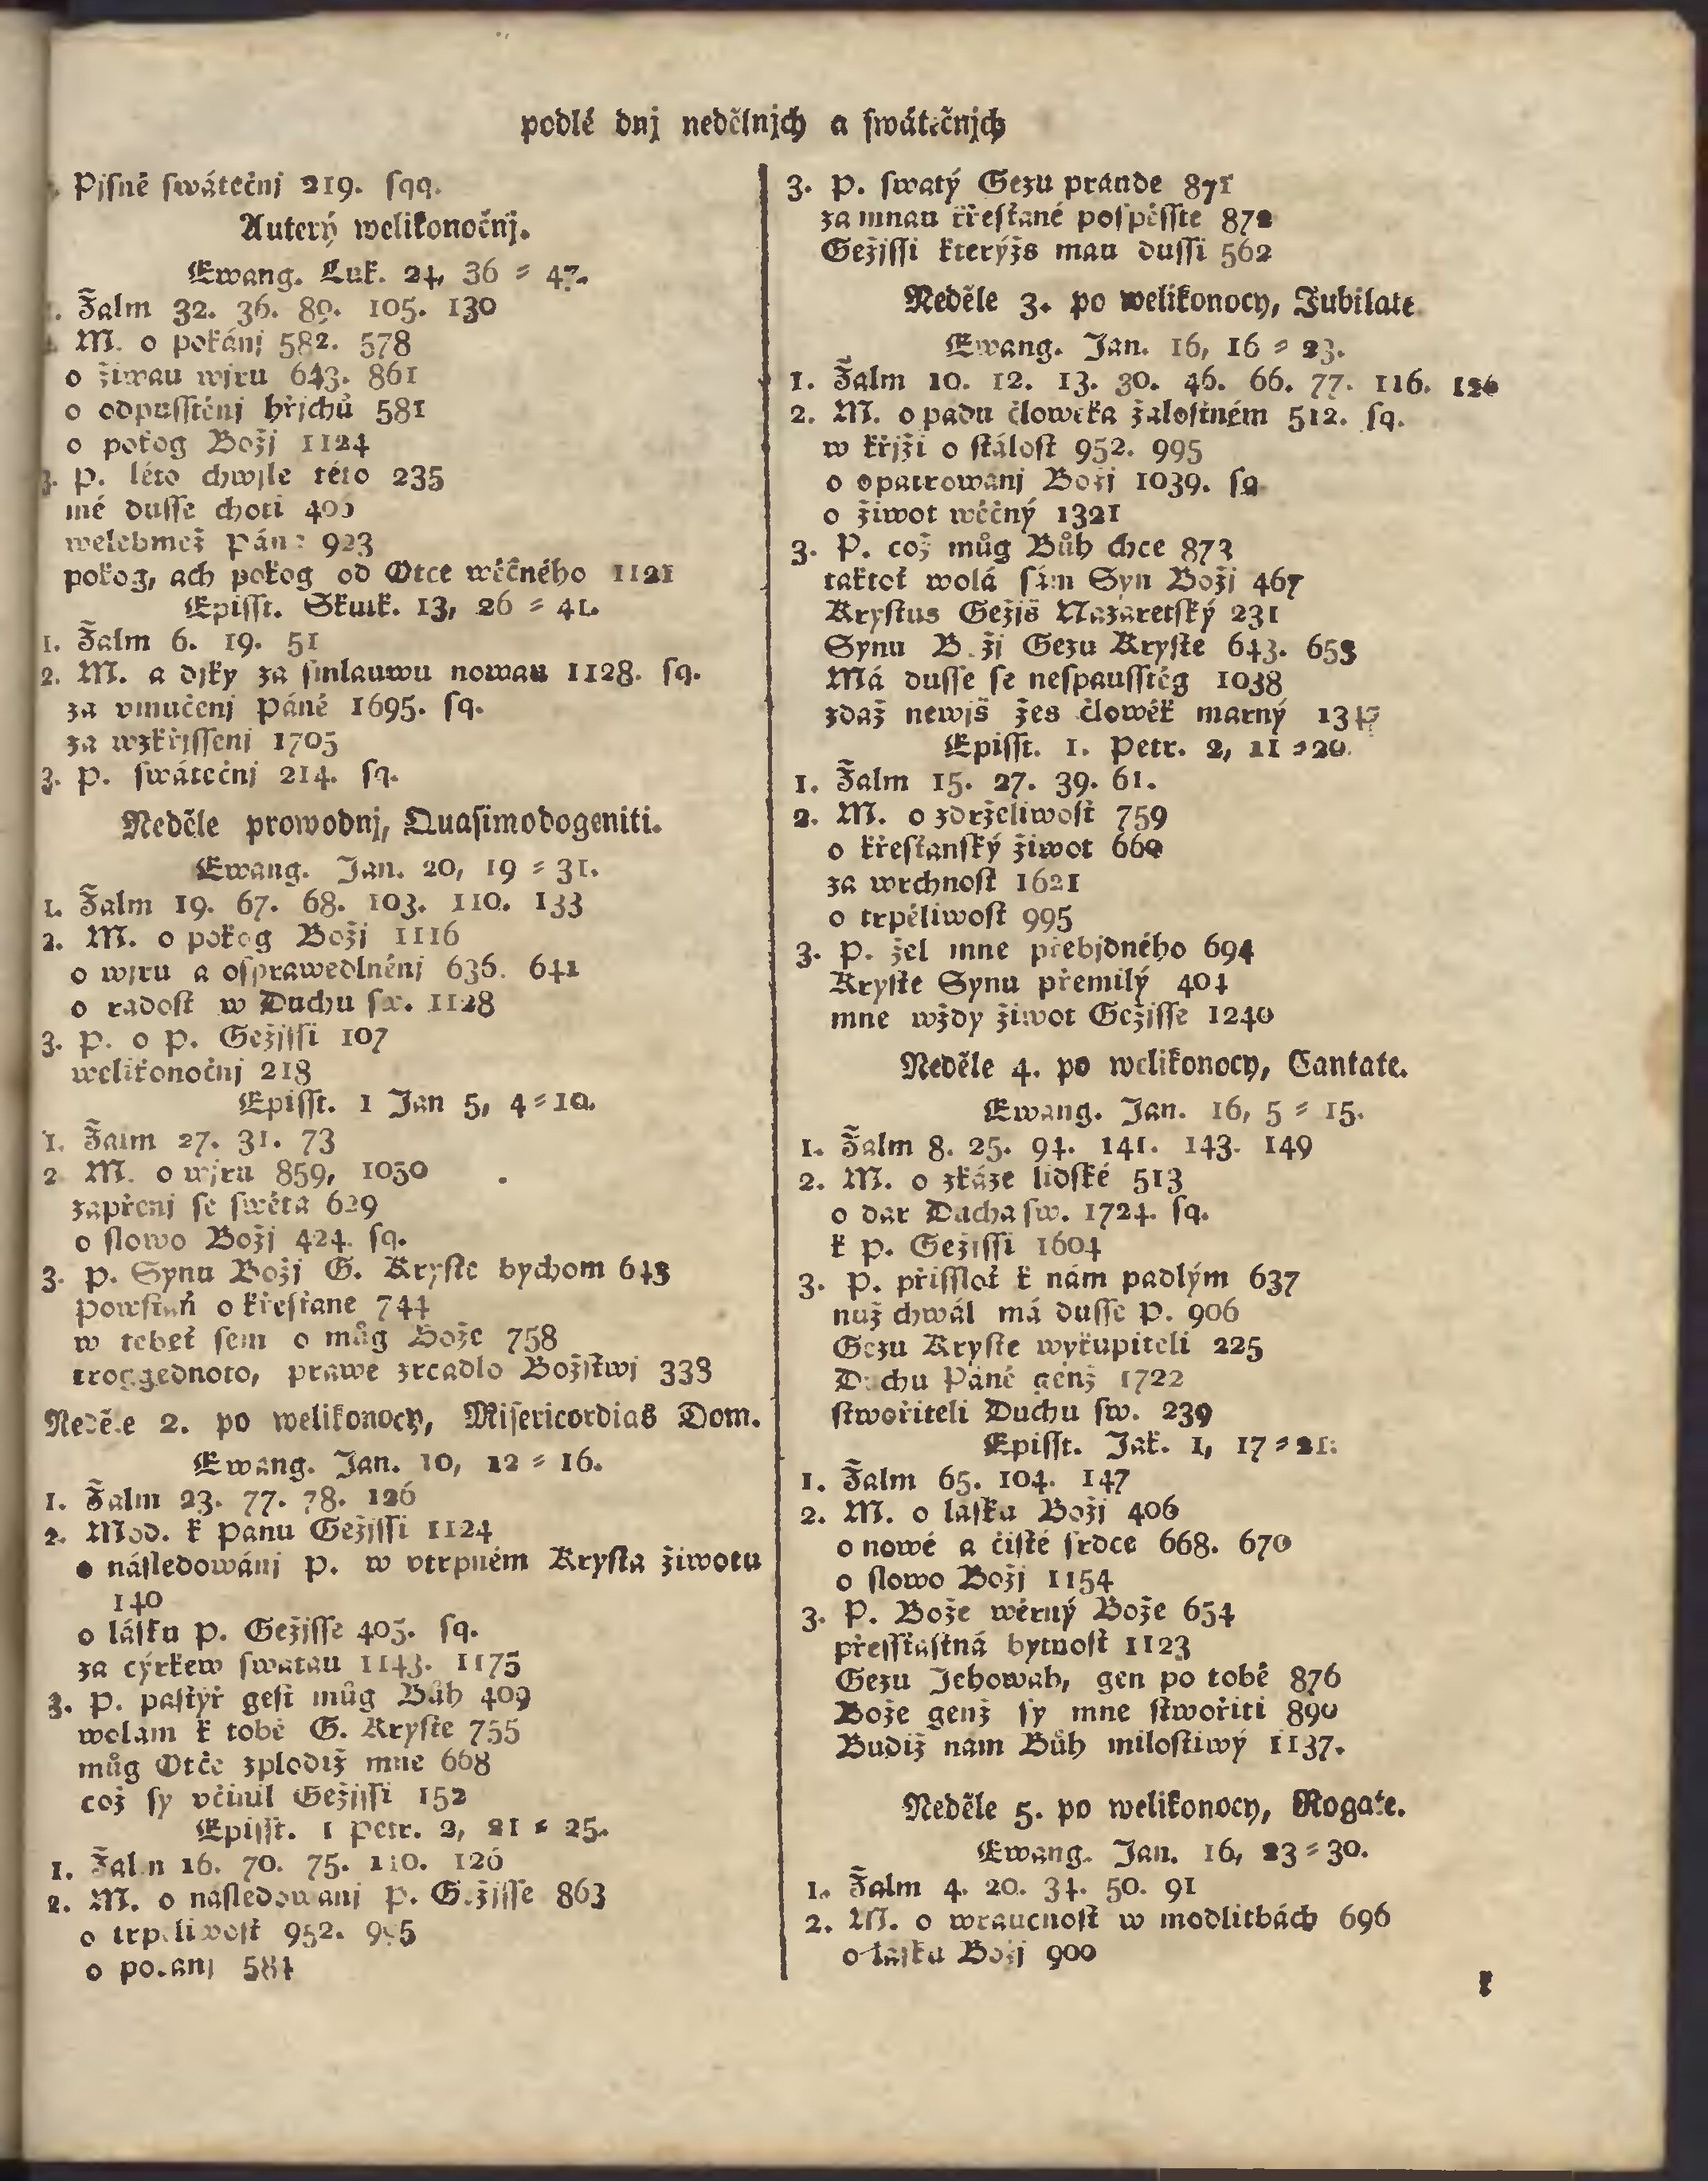 podlé dnj nedělnjch a swátečnjch
Pjsně swátečnj 219. sqq.
Auterý welikonočnj.
Ewang. Luk. 24, 36 = 47.
Žalm 32. 36. 89. 105. 130
M. o pokánj 582. 578
o žiwau wjru 643. 861
o odpusstěnj hřjchů 581
o pokog Božj 1124
3. P. léto chwjle této 235
mé dusse choti
welebmež Pána 923
pokog, ach pokog od Otce wěčného 1121
Episst. Skutk. 13, 26 = 41.
1. Žalm 6. 19. 51
2. M. a djky za smlauwu nowau 1128. sq.
za vmučenj Páně 1695. sq.
za wzkřjssenj 1705
3. P. swátečnj 214. sq.
Neděle prowodnj, Quasimodogeniti.
Ewang. Jan. 20, 19 = 31.
1. Žalm 19. 67. 68. 103. 110. 133
2. M. o pokog Božj 1116
o wjru a osprawedlněnj 636. 641
o radost w Duchu sw. 1128
3. P. o P. Gežjssi 107
welikonočnj 218
Episst. 1 Jan 5, 4=10.
1. Žalm 27. 31. 73
2 M. o wjru 859, 1050
zapřenj se swěta 629
o slowo Božj 424. sq.
3. P. Synu Božj G. Kryste bychom 643
powstaň o křesťane 744
w tebeť sem o můg Bože 758
troggednoto, prawe zrcadlo Božstwj 338
Neděle 2. po welikonocy, Misericordias Dom.
Ewang. Jan. 10, 12 = 16.
1. Žalm 23. 77. 78. 126
2. Mod. k Panu Gežjssi 1124
o následowánj P. w vtrpném Krysta žiwotu
140
o lásku P. Gežjsse 405. sq.
za cýrkew swatau 1143. 1175
3. P. pastýř gest můg Bůh 409
wolam k tobě G. Kryste 755
můg Otče zplodiž mne 668
což sy včinil Gežjssi 152
Episst. 1 Petr. 2, 21 = 25.
1. Žalm 16. 70. 75. 110. 126
2. M. o následowanj P. Gežjsse 863
o trpěliwost 952. 995
o pokanj 584
3. P. swatý Gezu prande 871
za mnau křesťané pospěsste 872
Gežjssi kterýžs mau dussi 562
Neděle 3. po welikonocy, Jubilate
Ewang. Jan. 16, 16 = 23.
1. Žalm 10. 12. 13. 30. 46. 66. 77. 116. 126
2. M. o pádu člowěka žalostném 512. sq.
w křjži o stálost 952. 995
o opatrowánj Božj 1039. sq
o žiwot wěčný 1321
3. P. což můg Bůh chce 873
taktoť wolá sám Syn Božj 467
Krystus Gežjš Nazaretský 231
Synu Božj Gezu Kryste 643. 653
Má dusse se nespausstěg 1038
zdaž newjš žes člowěk marný
Episst. 1. Petr. 2, 11 = 20.
1. Žalm 15. 27. 39. 61.
2. M. o zdrželiwost 759
o křesťanský žiwot 660
za wrchnost 1621
o trpěliwost 995
3. P. žel mne přebjdného 694
Kryste Synu přemilý 404
mne wždy žiwot Gežjsse 1240
Neděle 4. po welikonocy, Cantate.
Ewang. Jan. 16, 5 = 15.
1. Žalm 8. 25. 94. 141. 143. 149
2. M. o zkáze lidské 513
o dar Ducha sw. 1724. sq.
k P. Gežjssi 1604
3. P. přissloť k nám padlým 637
nuž chwál má dusse P. 906
Gezu Kryste wykupiteli 225
Duchu Páně genž 1722
stwořiteli Duchu sw. 239
Episst. Jak. 1, 17 = 21.
1. Žalm 65. 104. 147
2. M. o lásku Božj 406
o nowé a čisté srdce 668. 670
o slowo Božj 1154
3. P. Bože wěrný Bože 654
přessťastná bytnost 1123
Gezu Jehowah, gen po tobě 876
Bože genž sy mne stwořiti 890
Budiž nám Bůh milostiwý 1137.
Neděle 5. po welikonocy, Rogate.
Ewang. Jan. 16, 23 = 30.
1. Žalm 4. 20. 34. 50. 91
2. M. o wraucnost w modlitbách 696
o lásku Božj 900